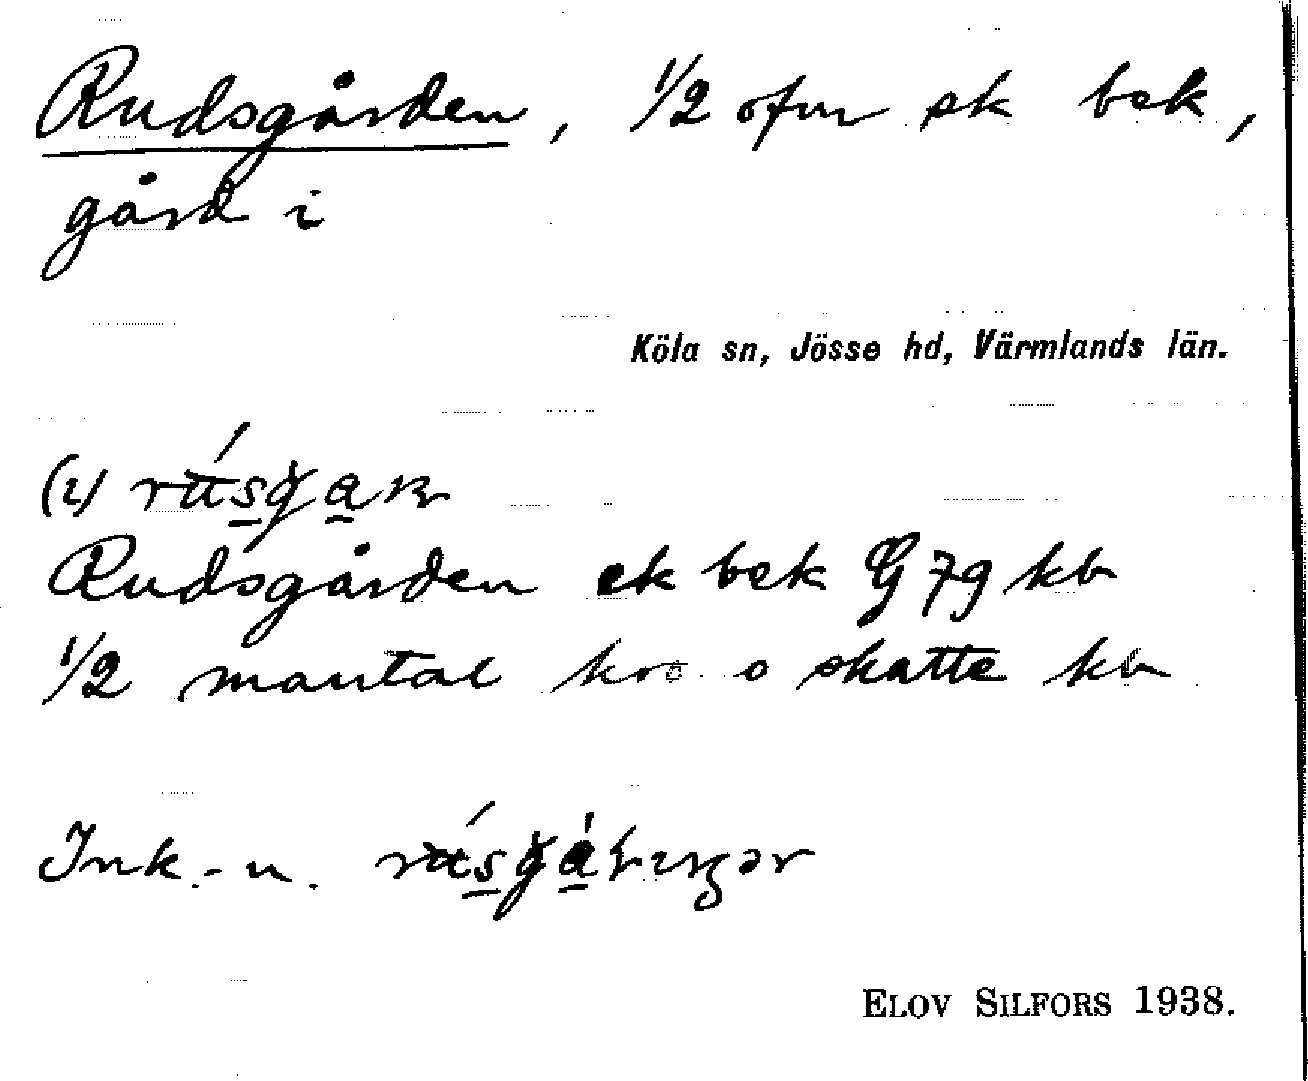 Rudsgården, 1/2 ofm sk bek,
gård i
Köla sn, Jösse hd, Värmlands län.
Rudsgården ek bek G 79 kb
1/2 mantal kro o skatte kb
Ink.-n.
ELOV SILFORS 1938.